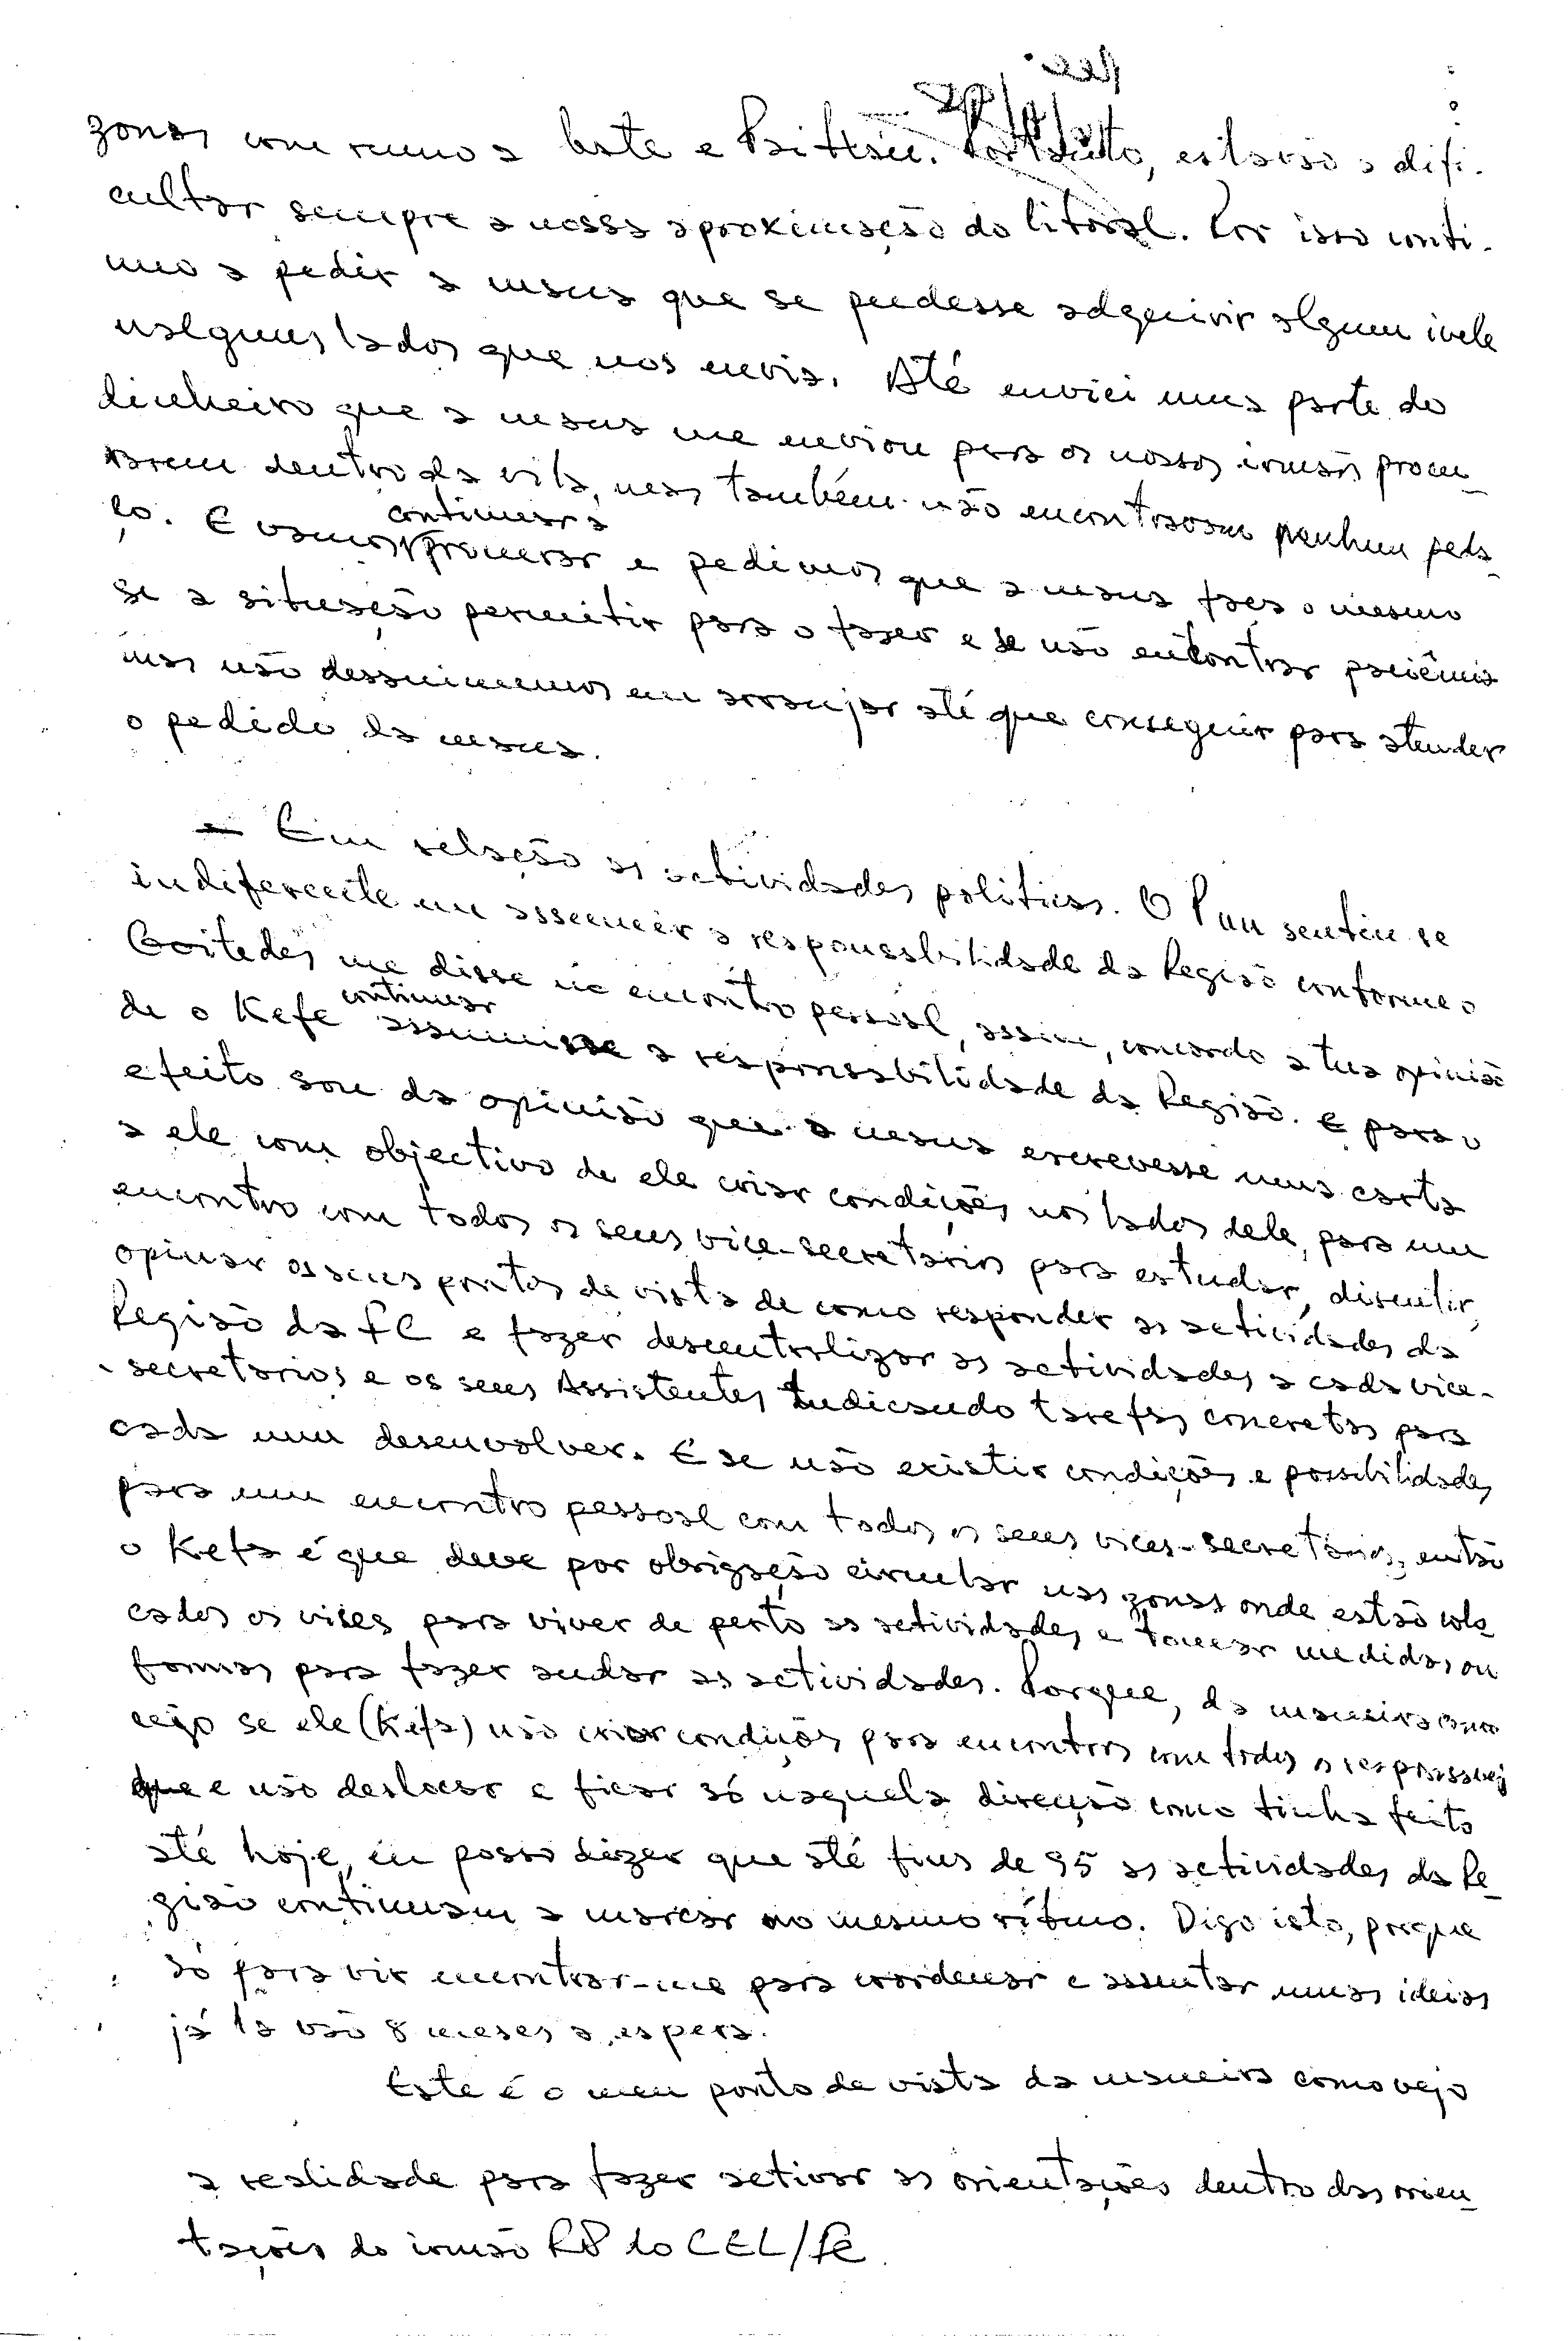 zonas com rumo a leste e Baiteru. Portanto, estarão a difi-
cultar sempre a nossa aproximação do litoral. Por isso conti-
nuo a pedir a mana que se pudesse adquirir algum
nalguns lados que nos envia. Até enviei uma parte do
dinheiro que a mana me enviou para os nossos irmãos procu_
rarem dentro da vila, mas também não encontraram nenhum peda_
ço. E vamos continuar a procurar e pedimos que a mana faça o mesmo
se a situação permitir para o fazer e se não encontrar paciência
mas não desanimemos em arranjar até que conseguir para atender
o pedido da mana.
- Em relação as actividades politicas. O Pau sentiu se
indiferente em assumir a responsabilidade da Região conforme o
me disse no encontro pessoal, assim, concordo a tua opinião
de o Kefe continuar assumisse a responsabilidade da Região. E para o
efeito sou da opinião que a mana escrevesse uma carta
a ele com objectivo de ele criar condições nos lados dele, para um
encontro com todos os seus vice-secretários para estudar, discutir,
opinar os seus pontos de vista de como responder as actividades da
Região da FC e fazer descentralizar as actividades a cada vice-
-secretarios e os seus Assistentes Indicando tarefas concretas para
cada um desenvolver. E se não existir condições e possibilidades
para um encontro pessoal com todos os seus vices-secretários, então
o Kefa é que deve por obrigação circular nas zonas onde estão colo_
cados os vices para viver de perto as actividades e tomar medidas ou
formas para fazer andar as actividades. Porque, da maneira como
vejo se ele (Kefa) não criar condições para encontros com todos os responsaveis
que e não deslocar e ficar só naquela direcção como tinha feito
até hoje, eu posso dizer que até fins de 95 as actividades da Re_
gião continuam a marcar no mesmo rítmo. Digo isto, porque
só para vir encontrar-me para coordenar e assentar umas ideias
já la vão 8 meses a espera.
Este é o meu ponto de vista da maneira como vejo
a realidade para fazer activar as orientações dentro das orien_
tações do irmão RP do CEL/FC